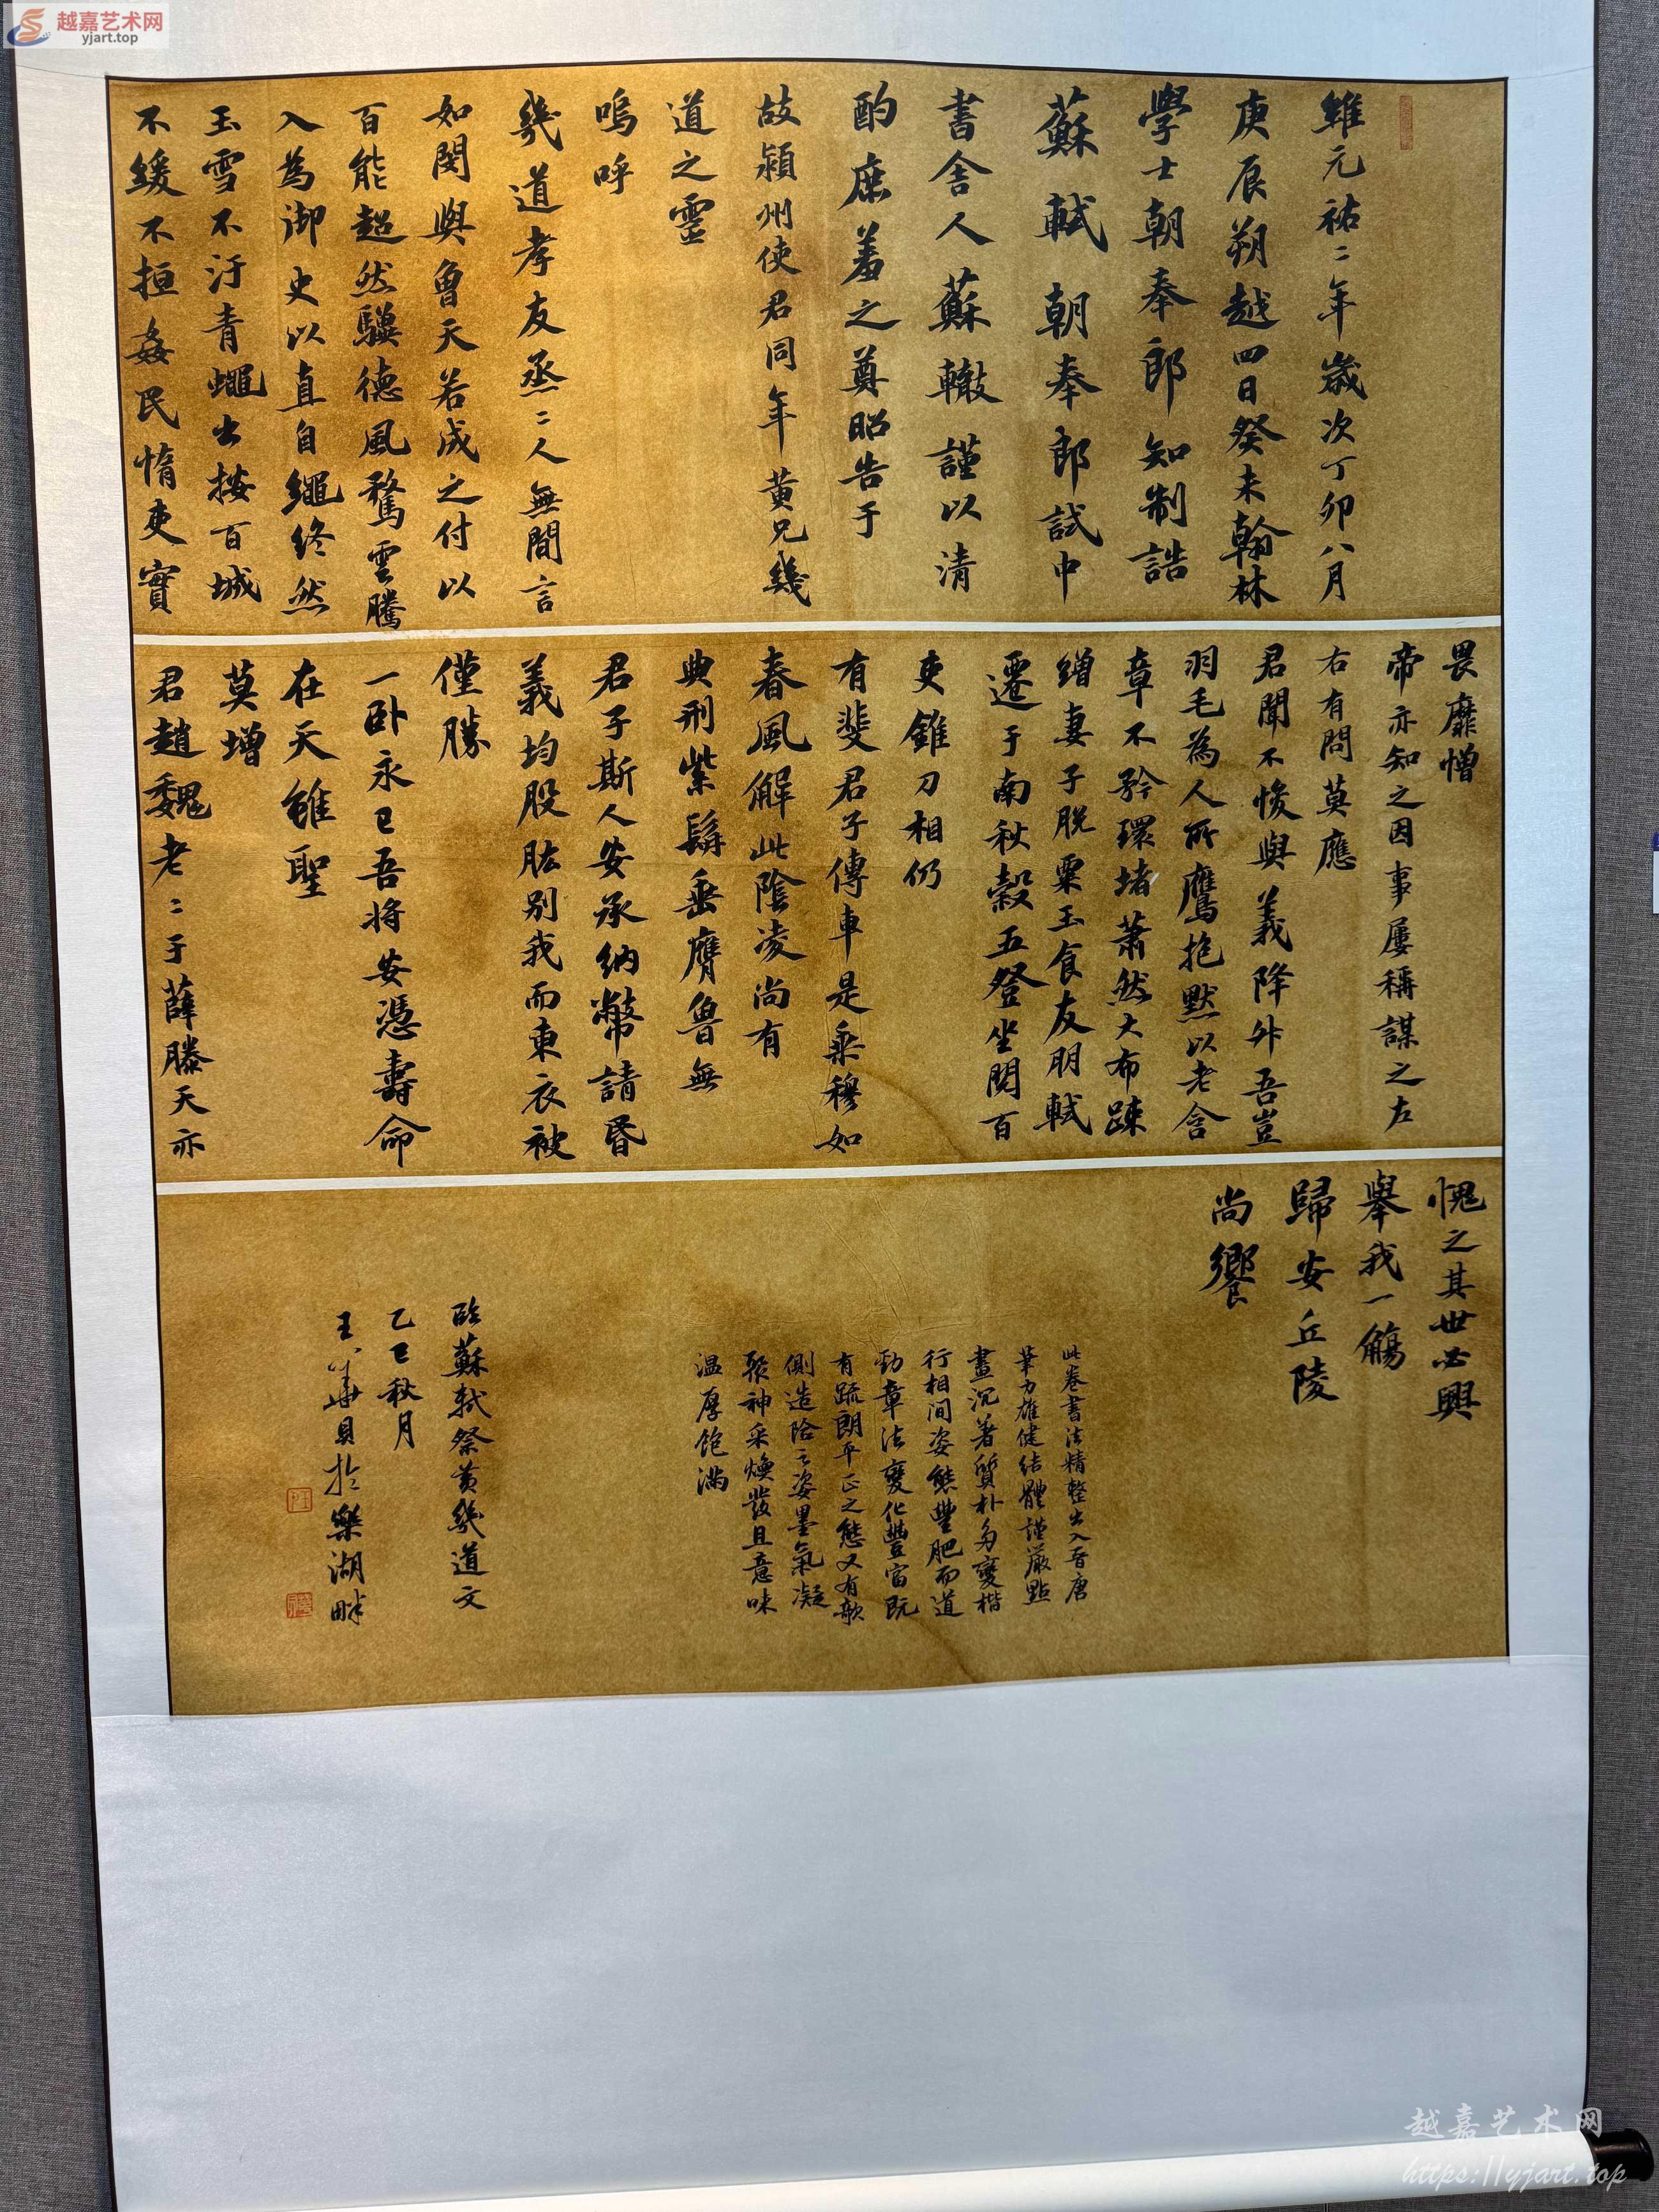 越嘉艺术网
yjart.top
維元祐二年歲次丁卯八月
庚辰朔越四日癸未翰林
學士朝奉郎知制誥
蘇軾朝奉郎試中
書舍人蘇轍謹以清
酌庶羞之奠昭告于
故潁州使君同年黃兄幾
道之靈
嗚呼
幾道孝友烝〻人無間言
如閔與曾天若成之付以
百能超然驥德風騖雲騰
入為御史以直自繩終然
玉雪不汙青蠅出按百城
不緩不搄姦民惰吏實
畏靡憎
帝亦知之因事屢稱謀之左
右有問莫應
君聞不悛與義降升吾豈
羽毛為人所鷹抱默以老含
章不矜環堵蕭然大布疎
繒妻子脫粟玉食友朋軾
遷于南秋穀五登坐閱百
吏錐刀相仍
有斐君子傳車是乘穆如
春風解此陰凌尚有
典刑紫髯垂膺魯無
君子斯人安承納幣請昏
義均股肱別我而東衣袂
僅勝
一卧永已吾將安憑壽命
在天雖聖
莫增
君趙魏老〻于薛滕天亦
愧之其世必興
舉我一觴
歸安丘陵
尚饗
此卷書法精整出入晉唐
筆力雄健結體謹嚴點
畫沉著質朴多變楷
行相間姿態豐肥而遒
勁章法變化豐富既
有疏朗平正之態又有欹
側造險之姿墨氣凝
聚神采煥發且意味
温厚飽滿
臨蘇軾祭黃幾道文
乙巳秋月
貝於樂湖畔
越嘉艺术网
https://yjart.top